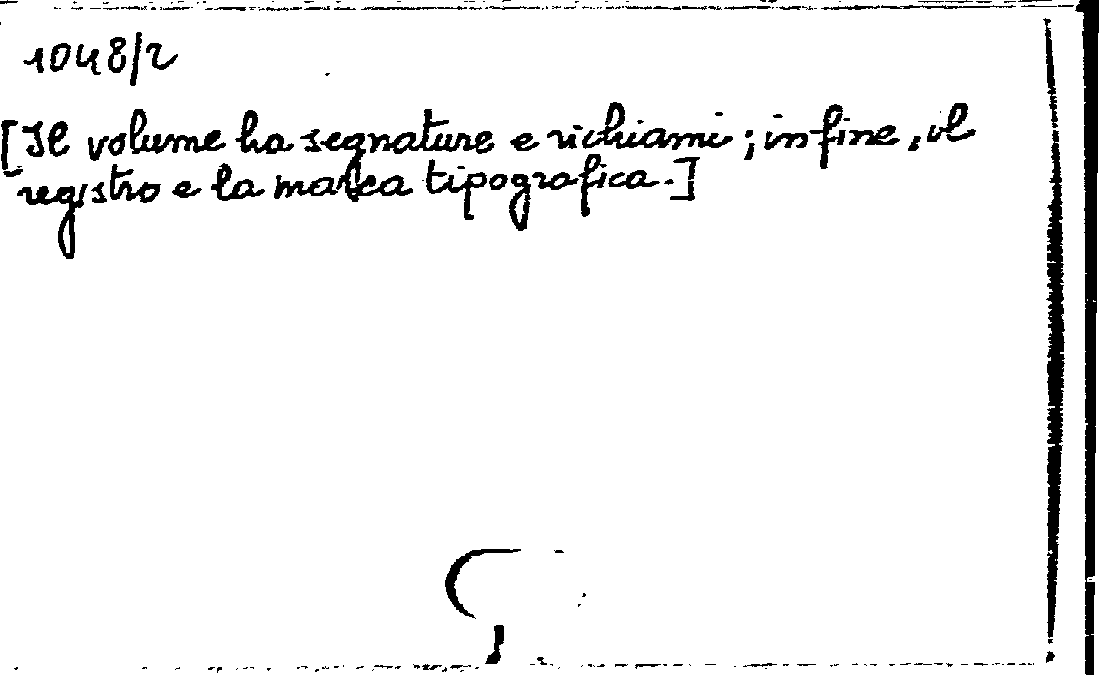 1048/2
[Il volume ha segnature e richiami; in fine, il
registro e la marca tipografica.]